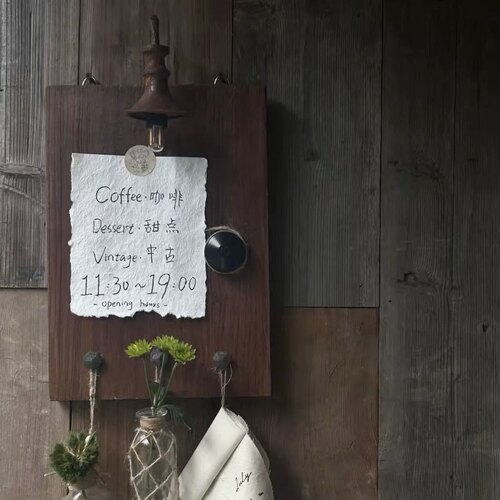 Coffee·咖啡
Dessert·甜点
Vintage·中古
11:30~19:00
- opening hours -
July